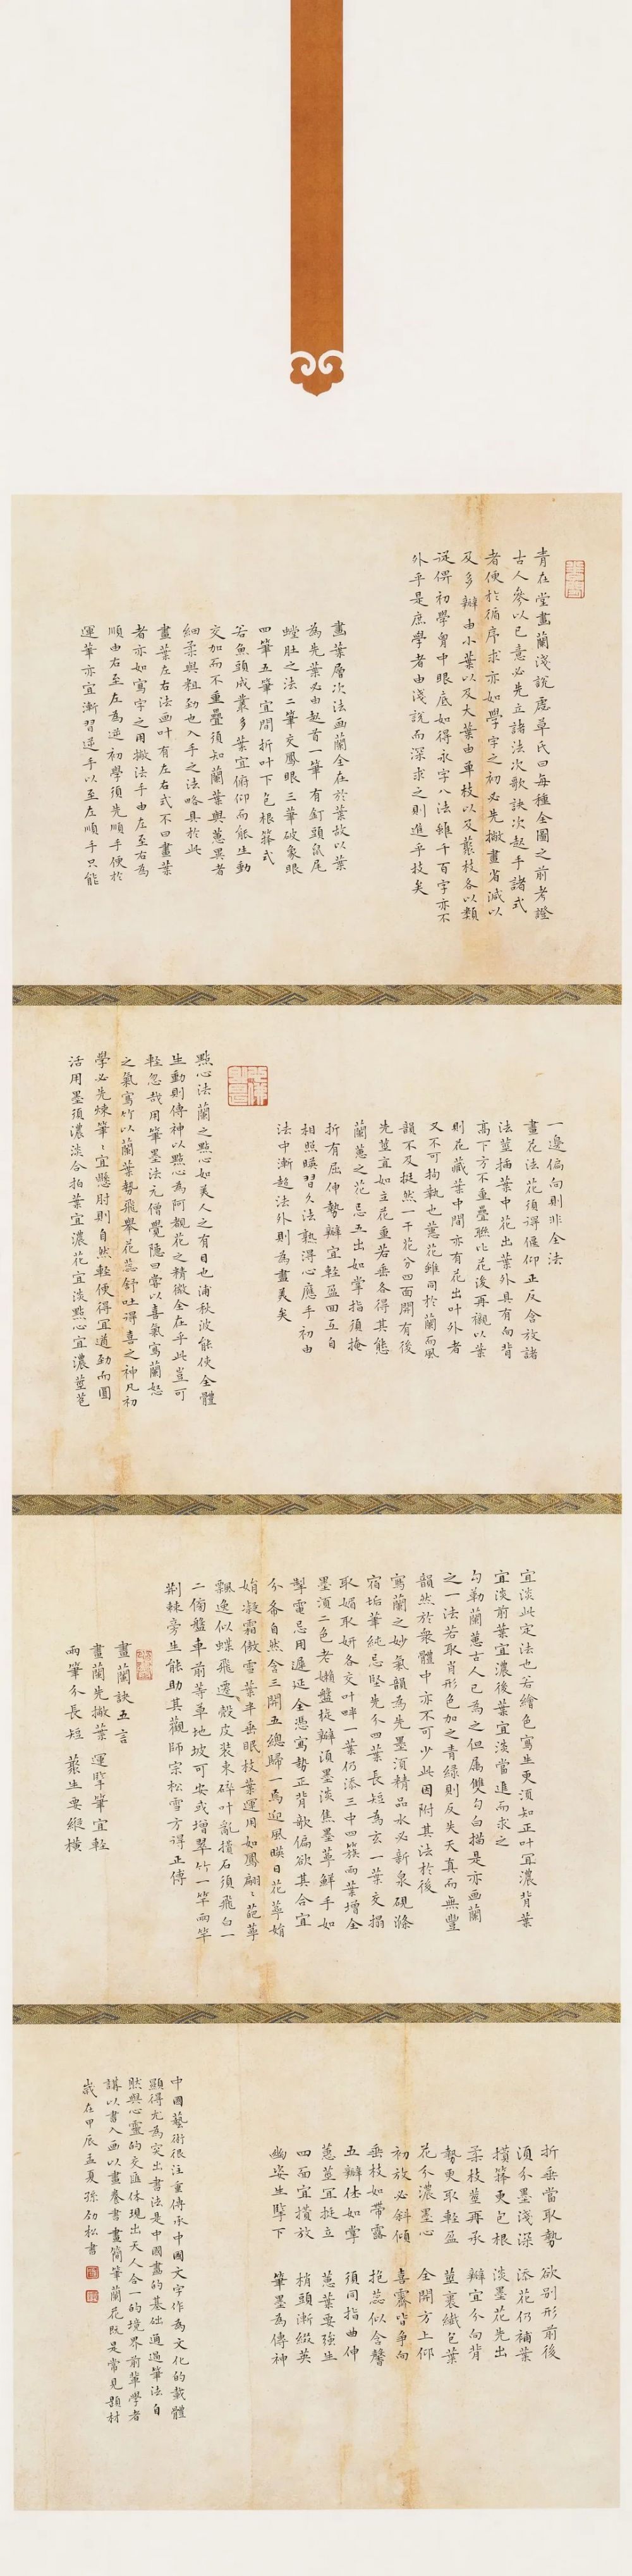 青在堂畫蘭淺說鹿草氏曰每種全圖之前考證
古人參以己意必先立諸法次歌訣次起手諸式
者便於循序求亦如學字之初必先撇畫省減以
及多瓣由小葉以及大葉由單枝以及叢枝各以類
從俾初學胷中眼底如得永字八法雖千百字亦不
外乎是庶學者由淺說而深求之則進乎技矣
畫葉層次法画蘭全在於葉故以葉
為先葉必由起首一筆有釘頭鼠尾
螳肚之法二筆交鳳眼三筆破象眼
四筆五筆宜間折叶下包根籜式
若魚頭成叢多葉宜俯仰而能生動
交加而不重疊須知蘭葉與蕙異者
細柔與粗勁也入手之法略具於此
畫葉左右法画叶有左右式不曰畫葉
者亦如寫字之用撇法手由左至右為
順由右至左為逆初學須先順手便於
運筆亦宜漸習逆手以至左順手只能
一邊偏向則非全法
畫花法花須得偃仰正反含放諸
法莖插葉中花出葉外具有向背
高下方不重疊聯比花後再襯以葉
則花藏葉中間亦有花出叶外者
又不可拘執也蕙花雖同於蘭而風
韻不及挺然一干花分四面開有後
先莖宜如立花重若垂各得其態
蘭蕙之花忌五出如掌指須掩
折有屈伸勢瓣宜輕盈回互自
相照暎習久法熟得心應手初由
法中漸超法外則為畫美矣
點心法蘭之點心如美人之有目也浦秋波能使全體
生動則傳神以點心為阿覩花之精微全在乎此豈可
輕忽哉用筆墨法元僧覺隱曰嘗以喜氣寫蘭怒
之氣寫竹以蘭葉勢飛舉花蕊舒吐得喜之神凡初
學必先煉筆筆宜懸肘則自然輕便得宜遒勁而圓
活用墨須濃淡合拍葉宜濃花宜淡點心宜濃莖苞
宜淡此定法也若繪色寫生更須知正叶宜濃背葉
宜淡前葉宜濃後葉宜淡當進而求之
勾勒蘭蕙古人已為之但屬雙勾白描是亦画蘭
之一法若取肖形色加之青綠則反失天真而無豐
韻然於衆體中亦不可少此因附其法於後
寫蘭之妙氣韻為先墨須精品水必新泉硯滌
宿垢筆純忌堅先分四葉長短為玄一葉交搦
取媚取妍各交叶畔一葉仍添三中四簇兩葉增全
墨須二色老嫩盤旋瓣須墨淡焦墨萼鮮手如
掣電忌用遲延全憑寫勢正背欹偏欲其合宜
分布自然含三開五總歸一焉迎風暎日花萼娟
娟凝霜傲雪葉半垂眠枝葉運用如鳳翩翩葩萼
飄逸似蝶飛遷殼皮裝束碎叶亂攢石須飛白一
二傍盤車前等草地坡可安或增翠竹一竿兩竿
荆棘旁生能助其觀師宗松雪方得正傳
畫蘭訣五言
畫蘭先撇葉 運腕筆宜輕
兩筆分長短 叢生要縱橫
折垂當取勢 欲別形前後
須分墨淺深 添花仍補葉
攢籜更包根 淡墨花先出
柔枝莖再承 瓣宜分向背
勢更取輕盈 莖裹纖包葉
花分濃墨心 全開方上仰
初放必斜傾 喜霽皆爭向
垂枝如帶露 抱蕊似含馨
五瓣休如掌 須同指曲伸
蕙莖宜挺立 蕙葉要強生
四面宜攢放 梢頭漸綴英
幽姿生腕下 筆墨為傳神
中國藝術很注重傳承中國文字作為文化的載體
顯得尤為突出書法是中國畫的基础通過筆法自
然與心靈的交匯体現出天人合一的境界前輩學者
講以書入画以畫養書畫简筆蘭花既是常見題材
歲在甲辰孟夏孫劭松書